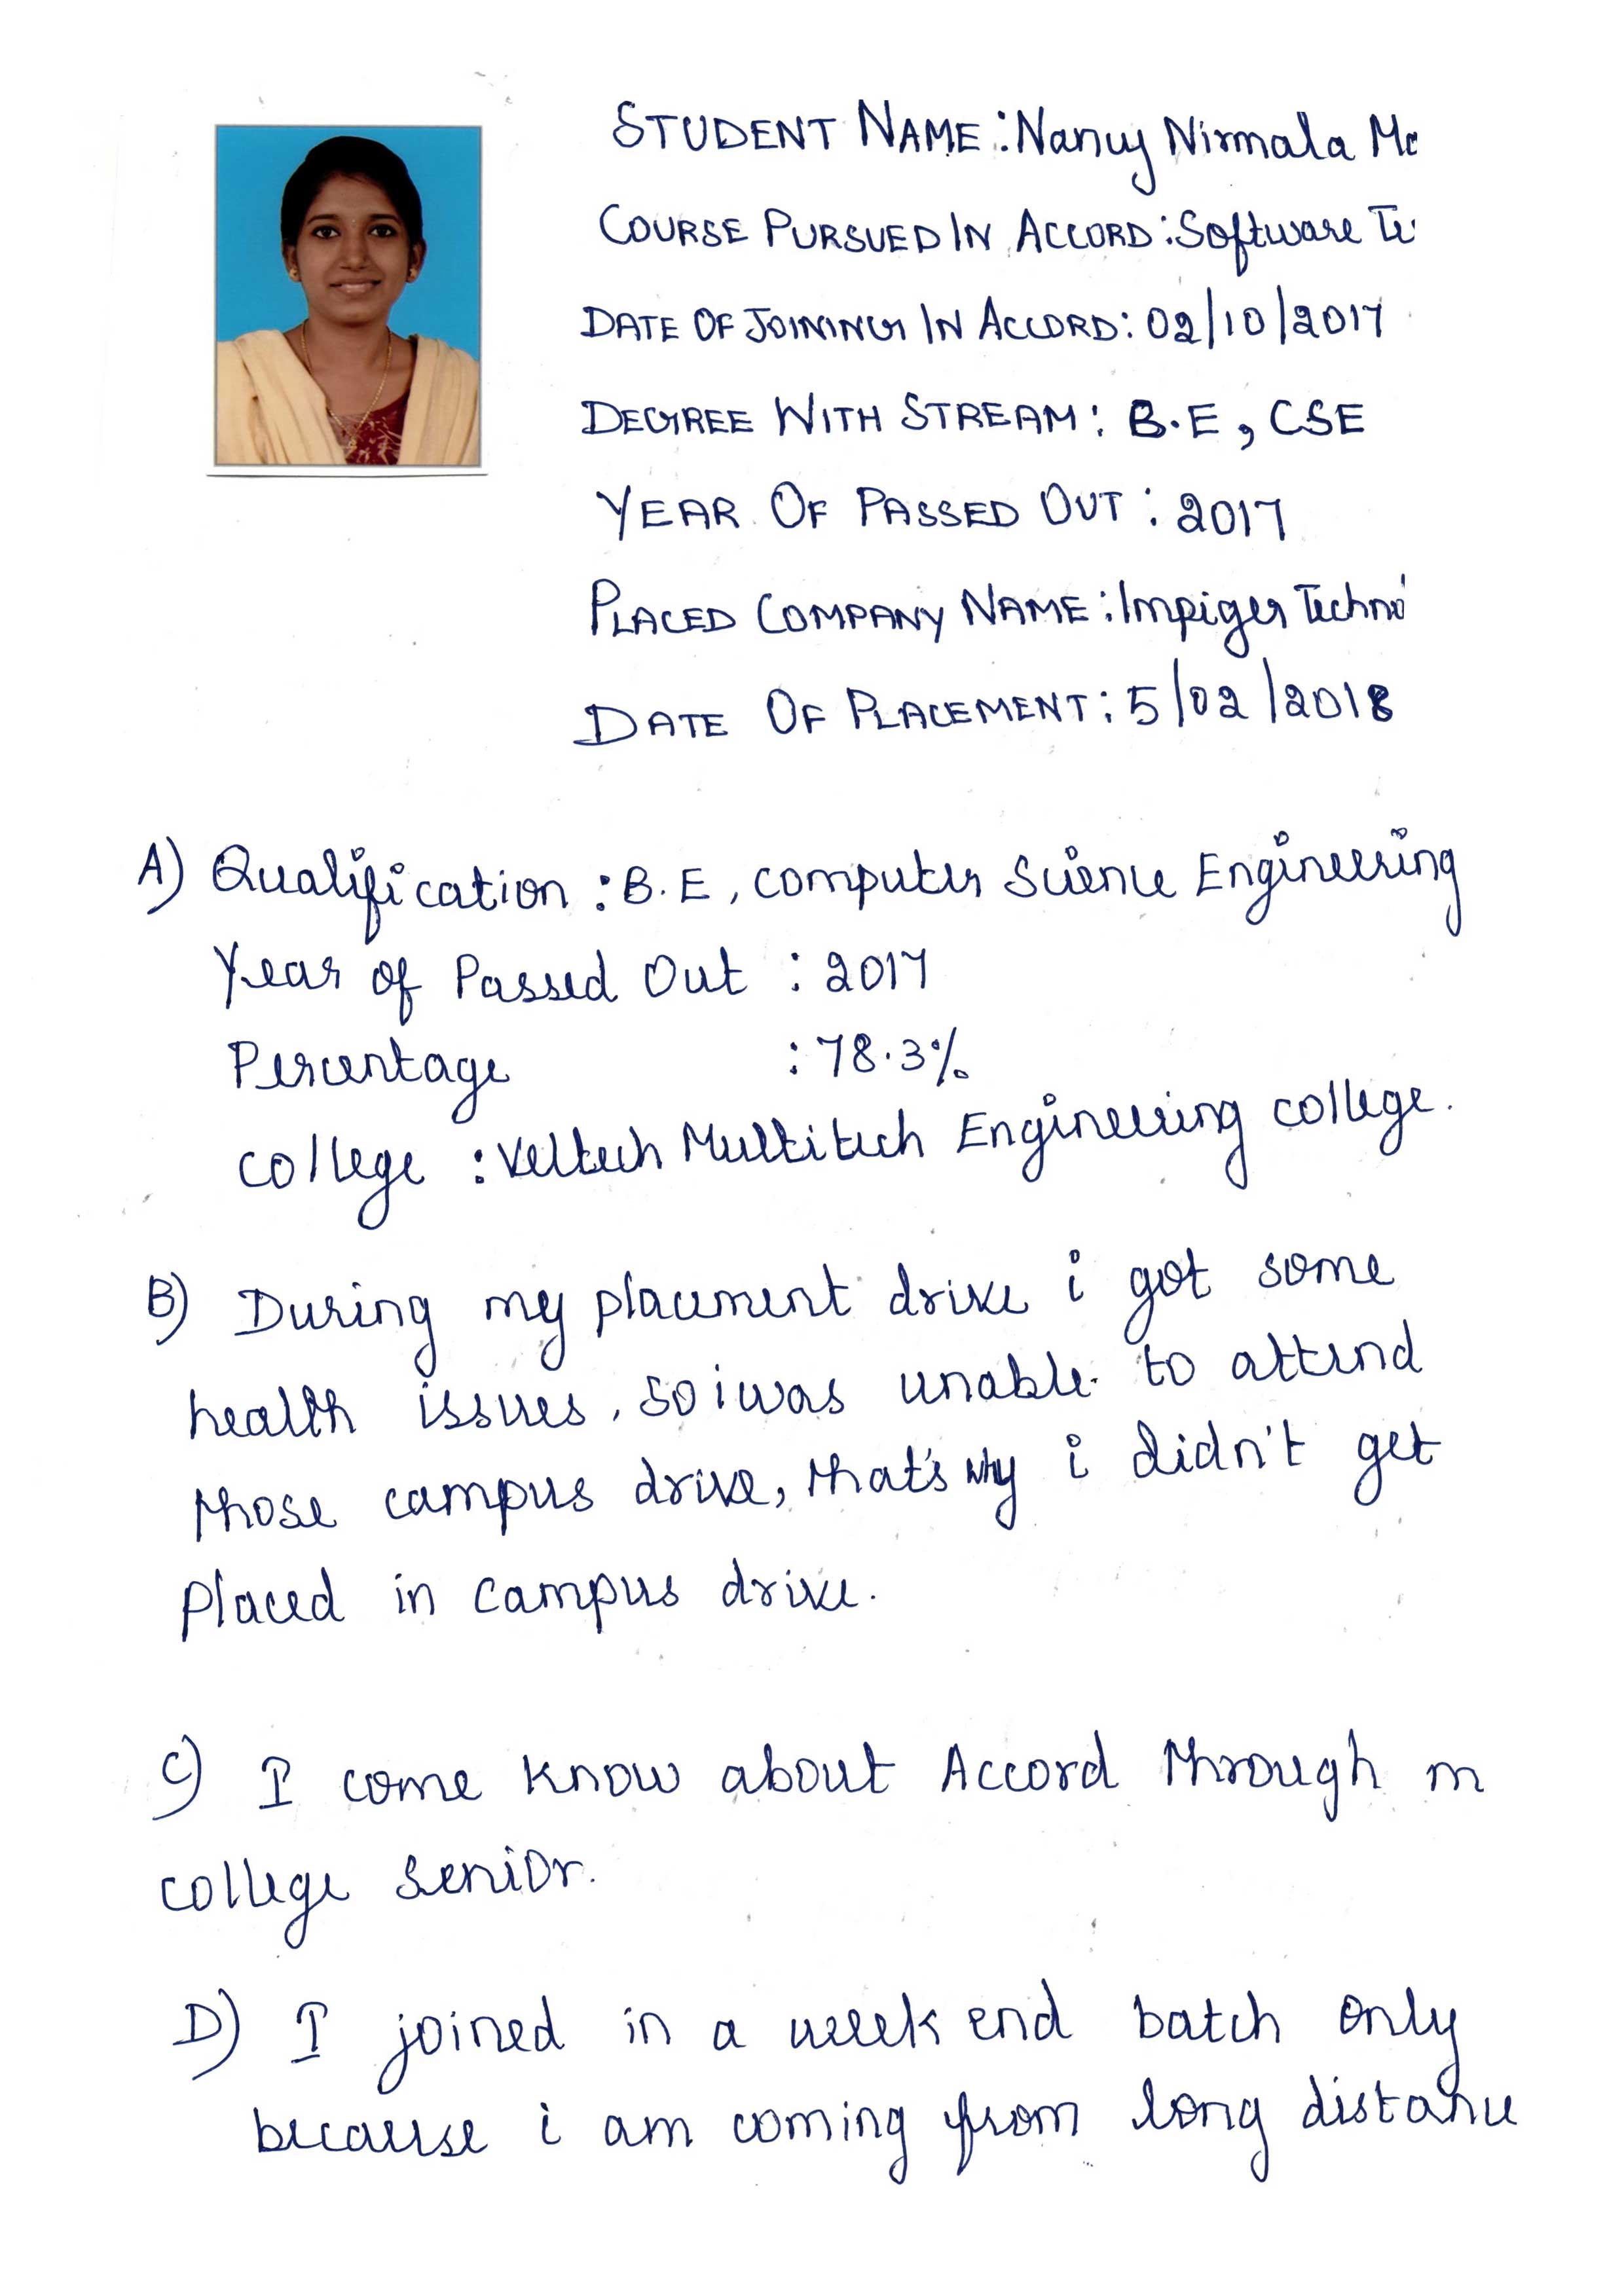 STUDENT NAME : Nancy Nirmala
COURSE PURSUED IN ACCORD : Software
DATE OF JOINING IN ACCORD : 02/10/2017
DEGREE WITH STREAM : B.E, CSE
YEAR OF PASSED OUT : 2017
PLACED COMPANY NAME : Impiger Techno
DATE OF PLACEMENT : 5/02/2018
A) Qualification : B.E, computer Science Engineering
Year of Passed Out : 2017
Percentage : 78.3%
college : Veltech Multitech Engineering college.
B) During my placement drive i got some
health issues, so i was unable to attend
those campus drive, that's why i didn't get
placed in campus drive.
C) I come know about Accord through m
college senior.
D) I joined in a week end batch only
because i am coming from long distance